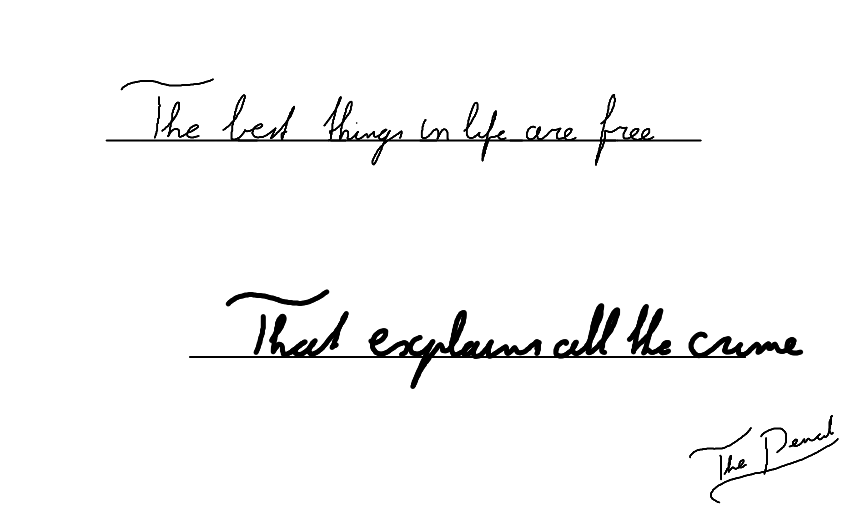 The best things in life are free
That explains all the crime
The Pencil